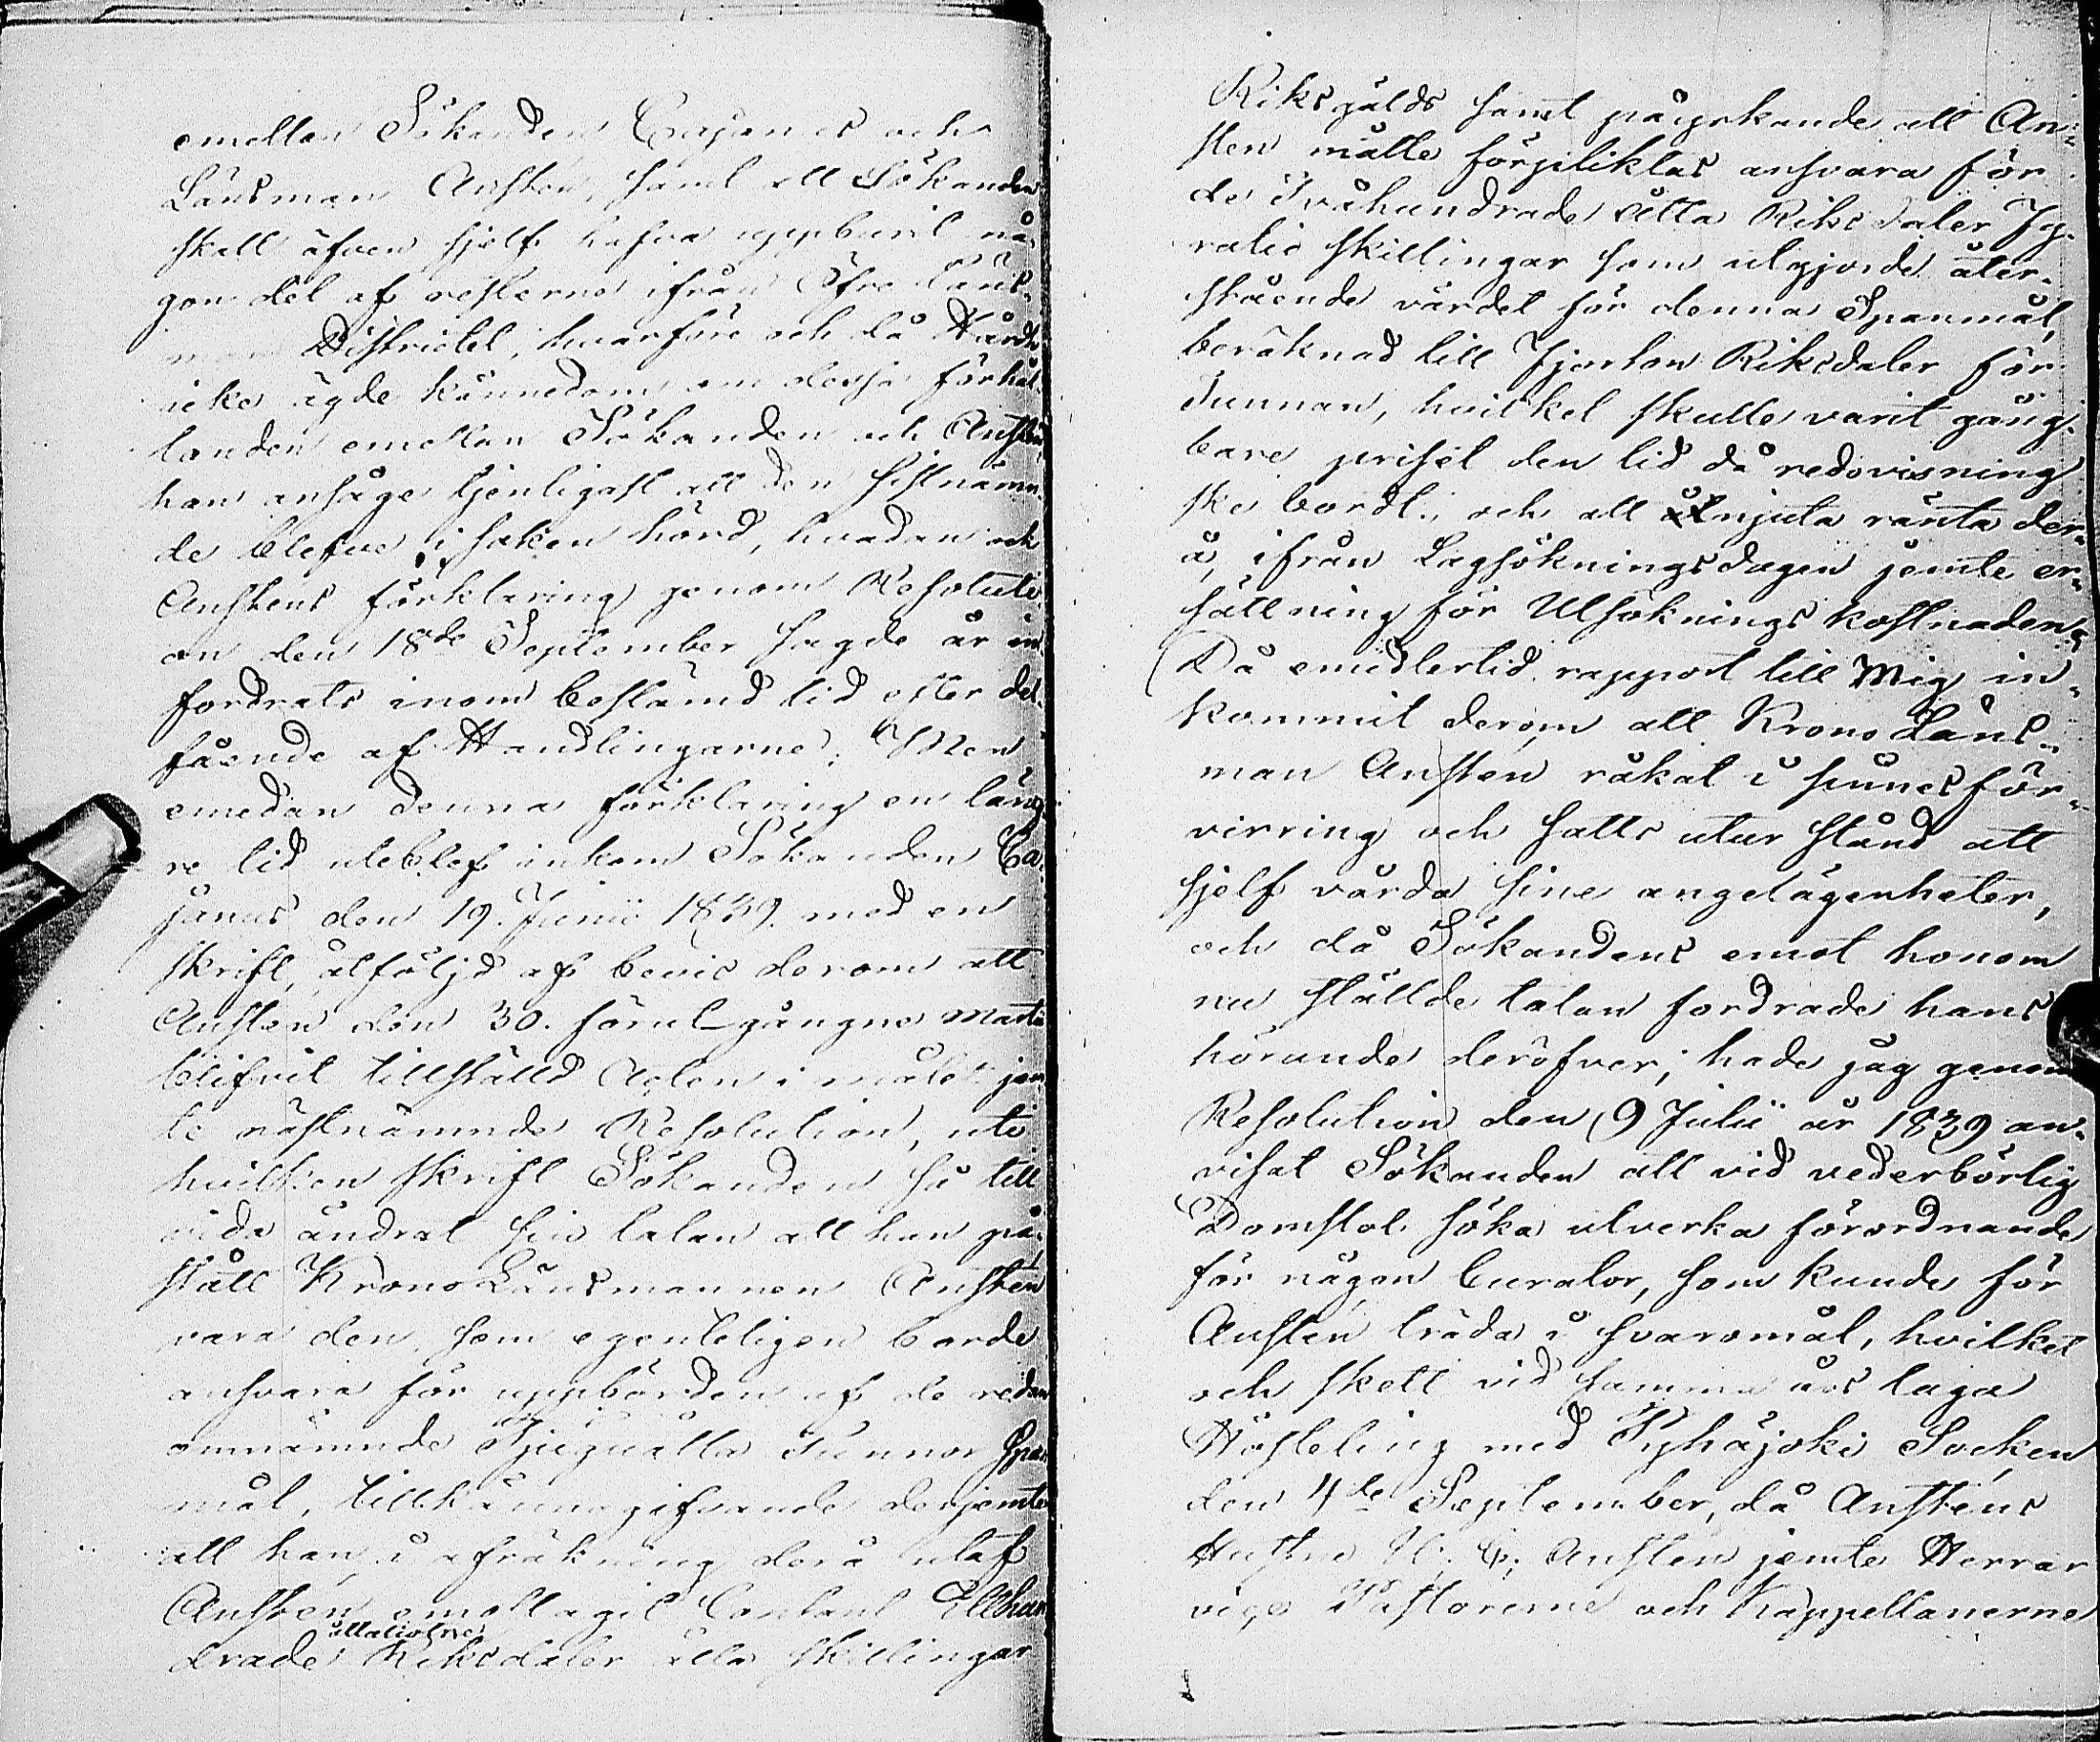 emellan Sökanden Cajanus och
Länsman Austen, samt att Sökanden
skall äfven sjelf hafva uppburit nå-
gon del af resterne ifrån Öfre Läns-
man Districtet, hvarföre och då Wårde
icke ägde kännedom om dessa förhål-
landen emellan Sökanden och Austén,
han ansåge tjenligast att den sistnämn-
de blefve i saken hörd, hvadan och
Austens förklaring genom Resoluti-
on den 18de September sagde år in-
fordrats inom bestämd tid efter del-
fående af Handlingarne; Men
emedan denna förklaring en läng-
re tid uteblef inkom Sökanden Ca-
janus den 19. Junii 1839. med en
skrift, åtföljd af bevis derom att
Austen den 30. förutgångne Martii
blifvit tillställd Acten i målet jem-
te nästnämnde Resolution, uti
hvilken skrift Sökanden så till
vida ändrat sin talan att han på-
stått Krono Länsmannen Austén
vara den, som egenteligen borde
ansvara för uppbörden af de redan
omnämnde Tjuguåtta Tunnor Span-
mål, tillkännagifvande derjemte
att han i afräkning derå utaf
Austén emottagit Contant Etthun-
åttatiofyra
drade Riksdaler åtta skillingar
Riksgälds samt påyrkande att Au-
sten måtte förpliktas ansvara för
de Tvåhundrade åtta Riksdaler Fy-
ratio skillingar som utgjorde åter-
stående värdet för denna Spanmål,
beräknad till Fjorton Riksdaler för
Tunnan, hvilket skulle varit gång-
bare priset den tid då redovisning
ske bordt, och att åtnjuta ränta der-
å, ifrån Lagsökningsdagen jemte er-
sättning för Utsöknings kostnaden.
Då emidlertid rapport till Mig in-
kommit derom att Krono Läns-
man Austén råkat i sinnesför-
virring och satts utur stånd att
sjelf vårda sine angelägenheter,
och då Sökandens emot honom
nu ställde talan fordrade hans
hörande deröfver; hade jag genom
Resolution den 9 Julii år 1839 an-
visat Sökanden att vid vederbörlig
Domstol söka utverka förordnande
för någon Curator, som kunde för
Austén träda i svaromål, hvilket
och skett vid samma års laga
Hösteting med Pyhäjoki Socken
den 4de September, då Austéns
Hustru Austen jemte Herrar
vice Pastorerne och Kappellanerne